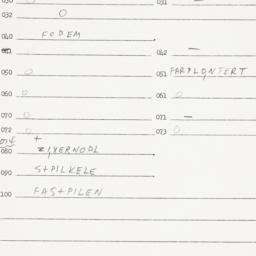 030 O 031 —
032 O
040 FODEM 042 —
050 O 051 FARPLONTERT
060 O 061 O
070 O 071 —
072 O 073 O
074 +
080 ZIVERNODL
090 S+PILKELE
100 FAS+PILEN